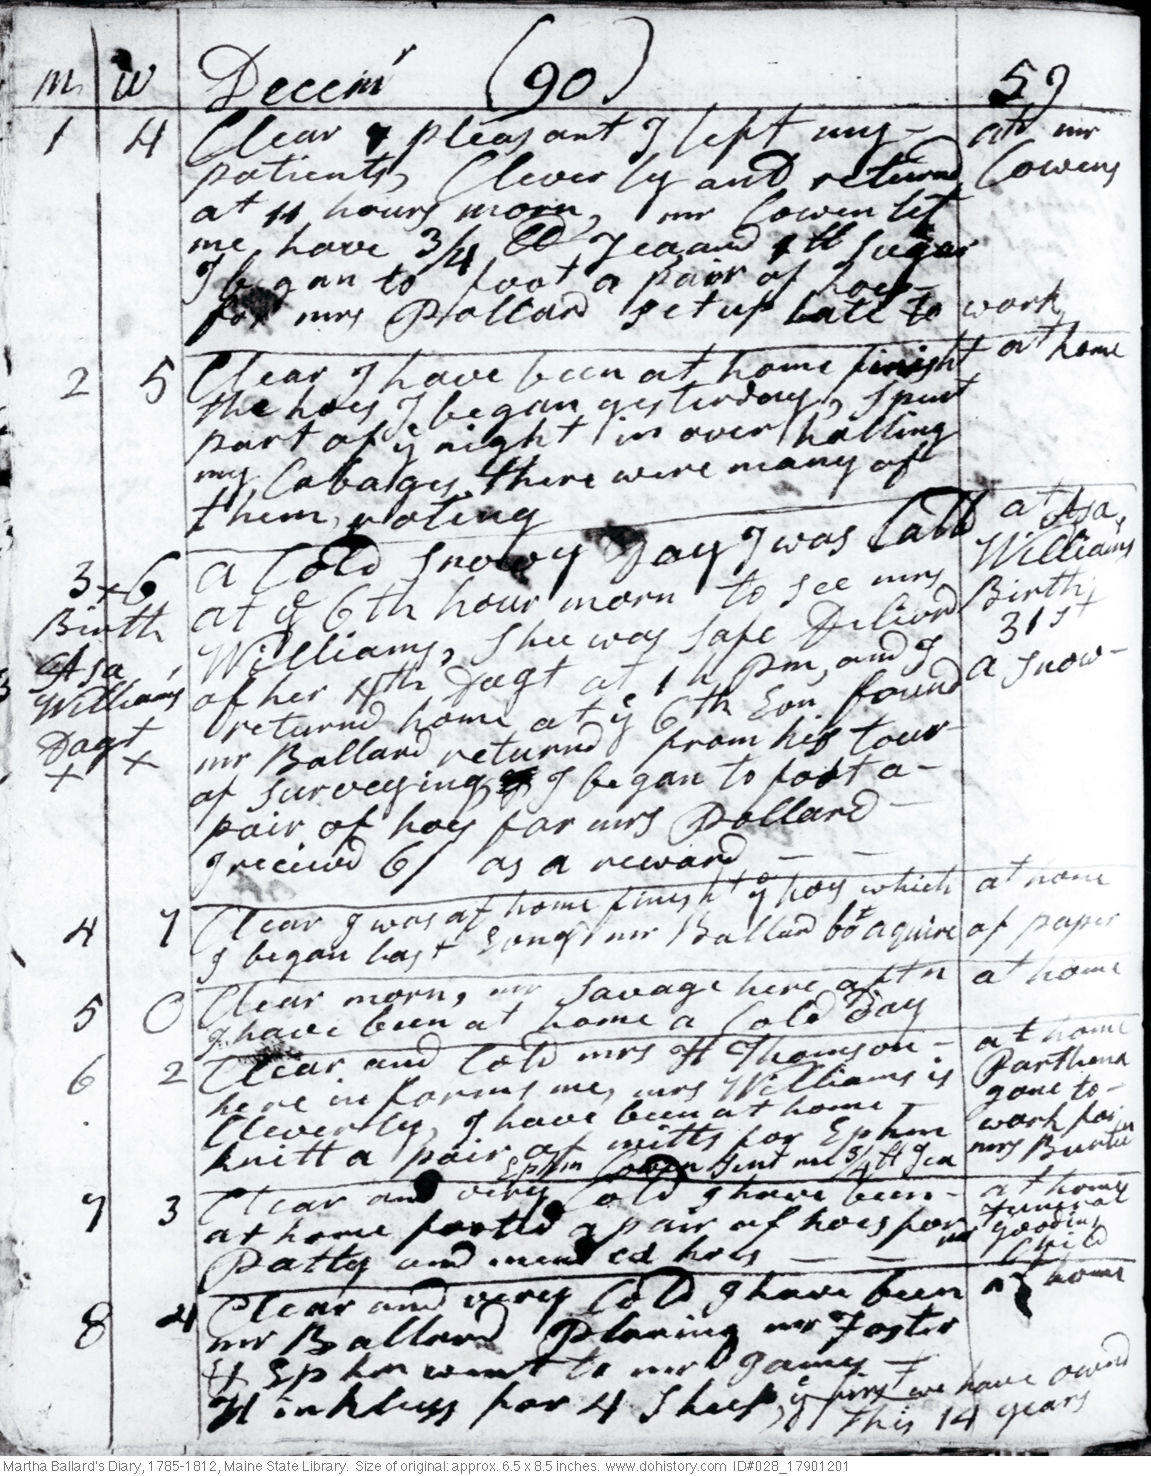 m w Decem'r (90) 59
1 4 Clear & pleasant I left my - at mr
patients, Cleverly and returnd Cowens
at 11 hours morn, mr Cowen let
me have 3/4 lb Tea and 1 lb Sugar
I began to foot a pair of hoes
for mrs Pollard set up late to work
2 5 Clear I have been at home finisht at home
the hoes I began yesterday, spent
part of ÿ night in over halling
my Cabages there were many of
them, roting
3 + 6 a Cold snowy Day I was Calld at Asa
Birth at ÿ 6th hour morn to see mrs Williams
Asa Williams, shee was safe Deliverd Birth,
Williams of her 4th Dagt at 1 h pm, and I 31st
Dagt returnd home at ÿ 6th Evn found a snow-
+ + mr Ballard returnd from his tour
of surveying, I began to foot a -
pair of hoes for mrs Pollard -
I receivd 6/ as a reward - -
4 7 Clear I was at home finisht ÿ hoes which at home
I began last Evng mr Ballard bot a quire of paper
5 0 Clear morn, mr Savage here aftn at home
I have been at home a Cold Day
6 2 Clear and Cold mrs H Thomson - at home
here informs me, mrs Williams is Parthena
Cleverly, I have been at home gone to -
knitt a pair of mitts for Ephm work for
Ephm Cowen sent me 3/4 lb Tea mrs Burtun
7 3 Clear and very Cold I have been - at home
at home footed a pair of hoes for funeral
Patty and mended hoes - - mr gooding
Child
8 4 Clear and very Cold I have been at home
mr Ballard Planing mr Foster
& Ephm went to mr James
Hinkleys for 4 Sheep, ÿ first we have ownd
this 14 years
Martha Ballard's Diary, 1785-1812, Maine State Library. Size of original: approx. 6.5 x 8.5 inches. www.dohistory.com ID#028_17901201